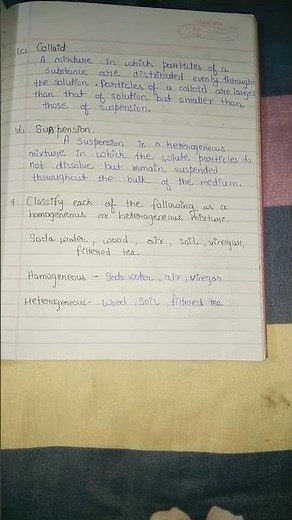 (c) Colloid
A mixture in which particles of a
substance are distributed evenly throught
the solution. Particles of a colloid are larger
than that of solution but smaller than
those of suspension.
(d) Suspension.
A suspension is a heterogeneous
mixture in which the solute particles do
not dissolve but remain suspended
throughout the bulk of the medium.
4 Classify each of the following as a
homogeneous or heterogeneous mixture.
Soda water, wood, air, soil, vinegar,
filtered tea.
Homogeneous - Soda water, air, vinegar
Heterogeneous - Wood, soil, filtered tea